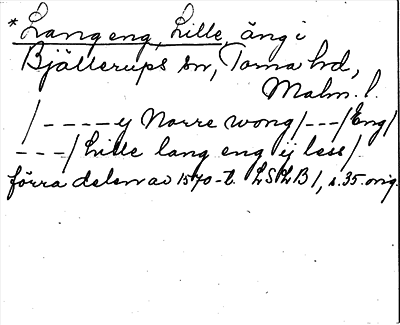 * Lang eng, Lille, äng i
Bjällerups sn, Torna hd,
Malm. l.
/ - - - - y Norre wong / - - - / Eng /
- - - / Lille lang eng ij less /.
förra delen av 1570-t. LSLB 1, s. 35. orig.